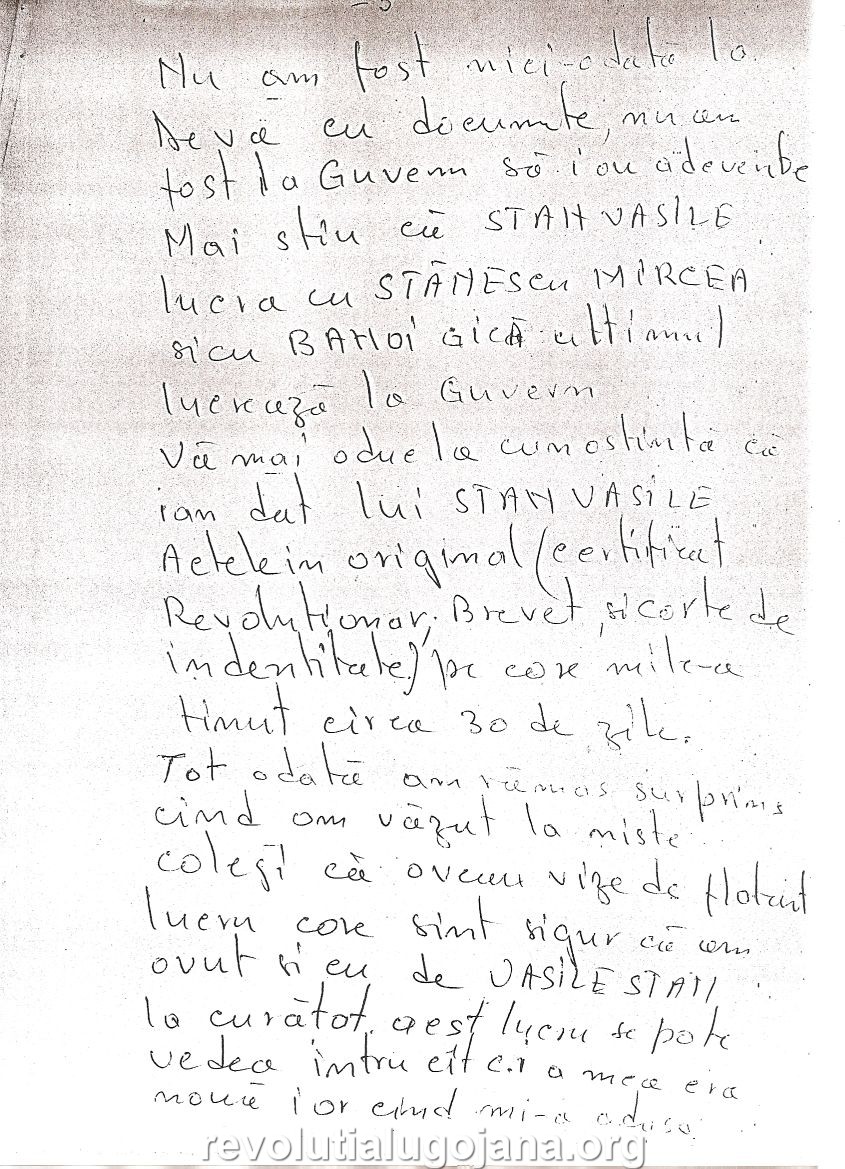 - 3
Nu am fost nici-odată la
Deva cu documnte, nu am
fost la Guvern să iau adeverințe
Mai stiu că STAN VASILE
lucra cu STĂNESCU MIRCEA
sicu BANOI GICĂ ultimul
lucrează la Guvern
Vă mai aduc la cunostinta că
iam dat lui STAN VASILE
Actele in original (certificat
Revoluționar, Brevet, si carte de
indentitate) pe care mile-a
tinut circa 30 de zile.
Tot odată am rămas surprins
cind am văzut la niste
colegi că aveau vize de flotant
lucru care sint sigur că am
avut si eu de VASILE STAN
la curătat, acest lucru se pote
vedea intru cit c.i a mea era
nouă iar cind mi-a adus-o
revolutialugojana.org